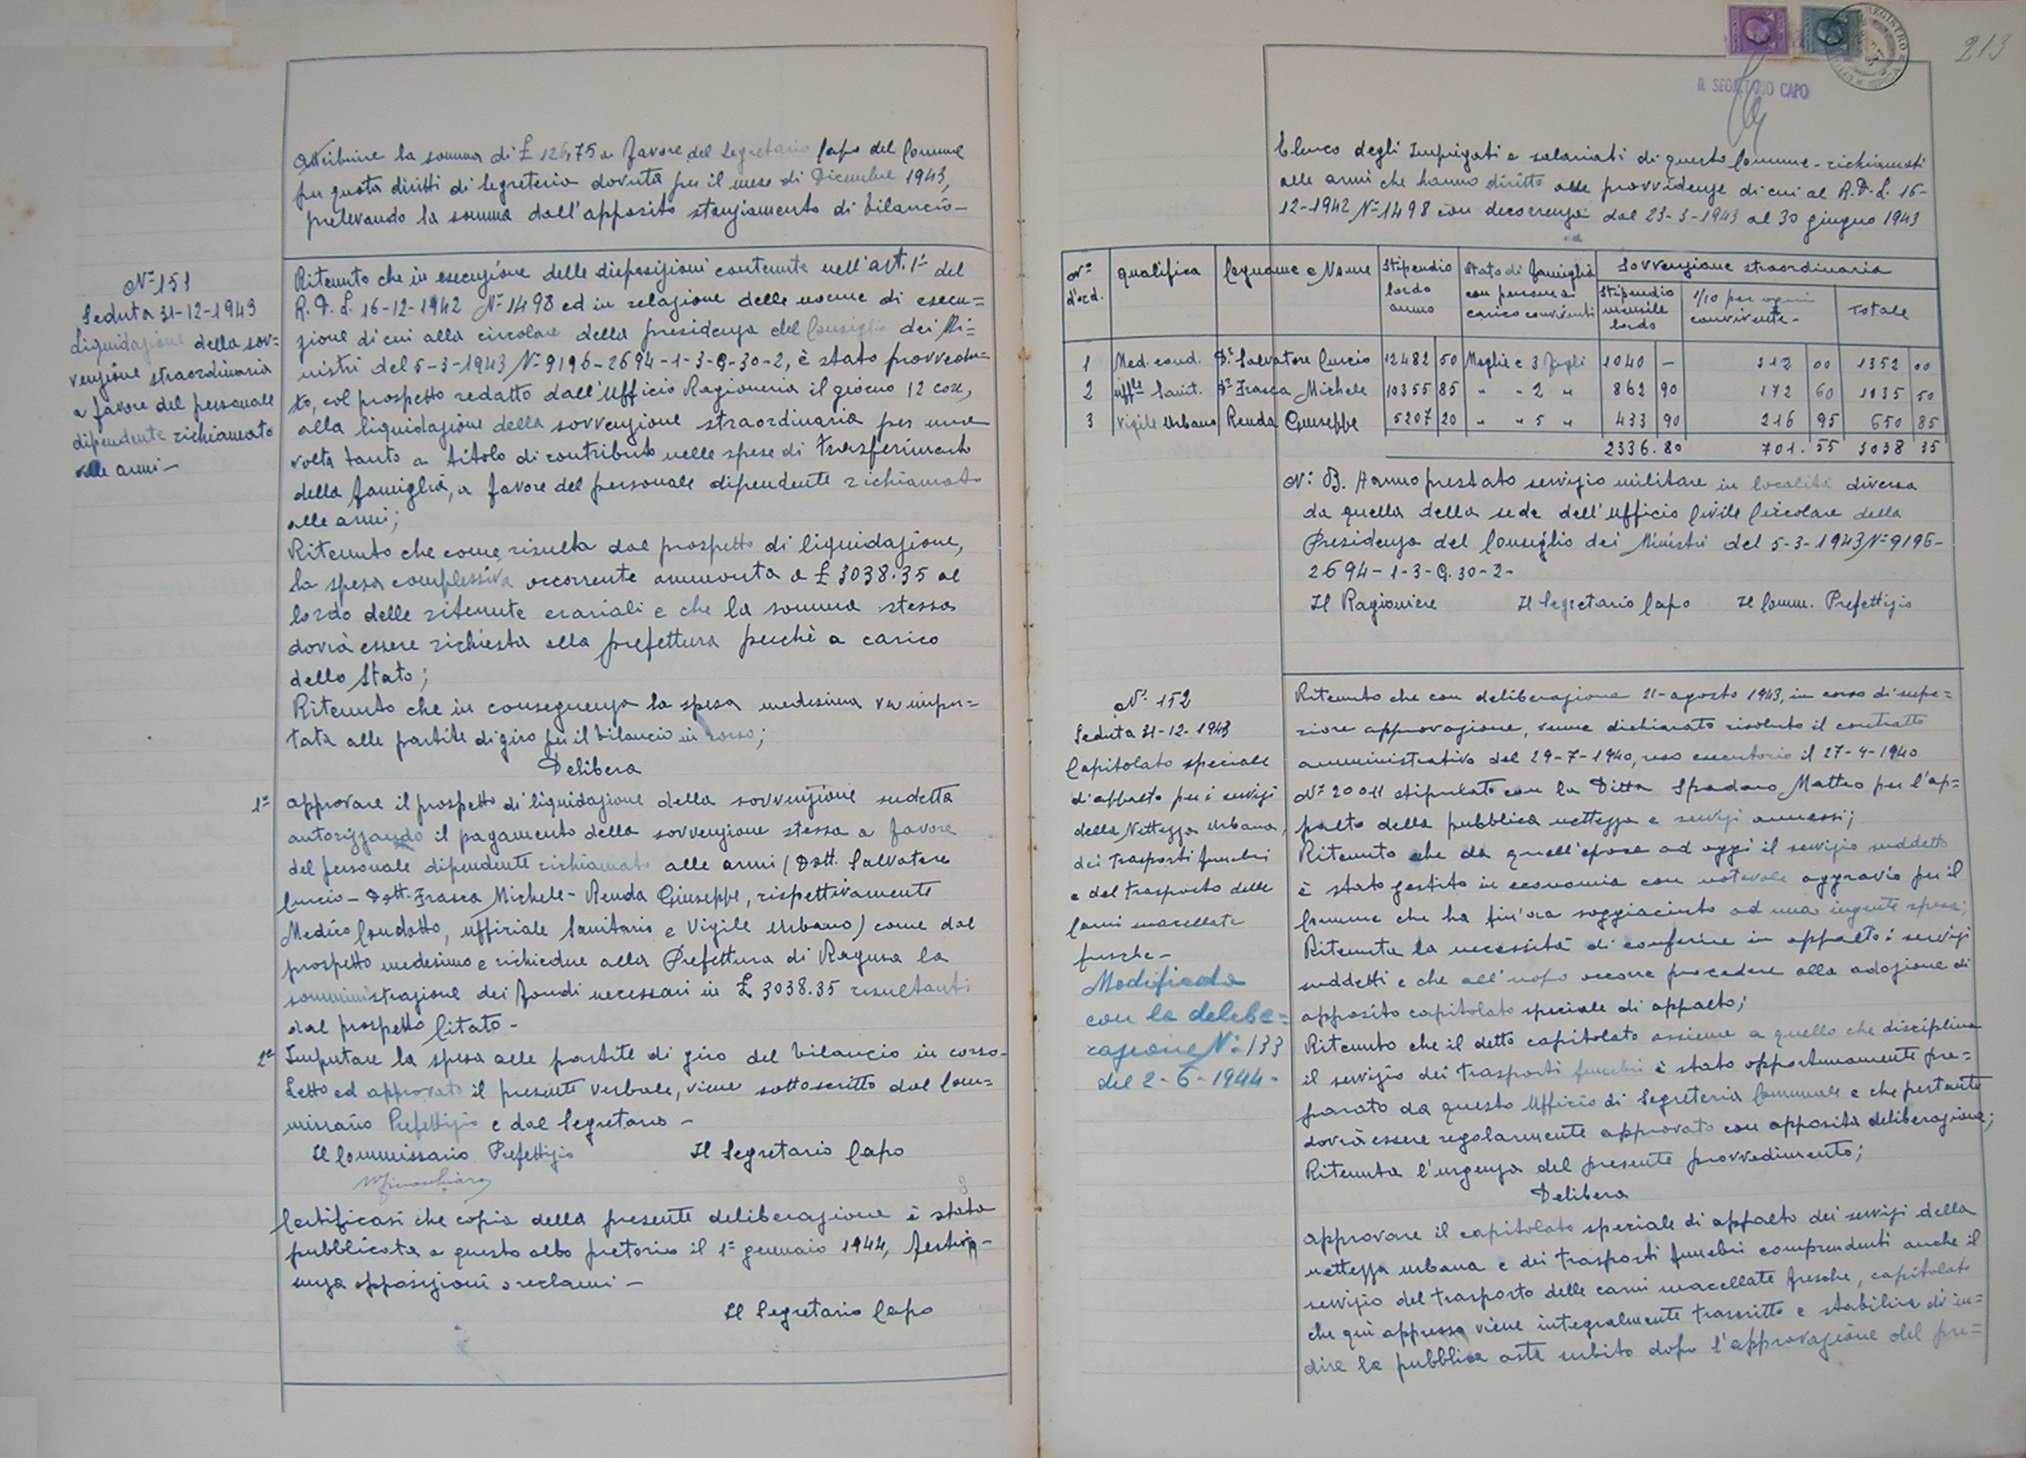 Attribuire la somma di £ 126,75 a favore del Segretario Capo del Comune
per quota diritti di Segreteria dovuta per il mese di Dicembre 1943,
prelevando la somma dall'apposito stanziamento di bilancio-
N° 151
Seduta 31-12-1943
Liquidazione della sov=
venzione straordinaria
a favore del personale
dipendente richiamato
alle armi-
Ritenuto che in esecuzione delle disposizioni contenute nell'art. 1° del
R. D. L. 16-12-1942 N° 1498 ed in relazione delle norme di esecu=
zione di cui alla circolare della presidenza del Consiglio dei Mi=
nistri del 5-3-1943 N° 9196-2694-1-3-G-30-2, è stato provvedu=
to, col prospetto redatto dall'Ufficio Ragioneria il giorno 12 corr,
alla liquidazione della sovvenzione straordinaria per una
volta tanto a titolo di contributo nelle spese di trasferimento
della famiglia, a favore del personale dipendente richiamato
alle armi;
Ritenuto che come risulta dal prospetto di liquidazione,
la spesa complessiva occorrente ammonta a £ 3038.35 al
lordo delle ritenute erariali e che la somma stessa
dovrà essere richiesta alla prefettura perchè a carico
dello Stato;
Ritenuto che in conseguenza la spesa medesima va impu=
tata alle partite di giro per il bilancio in corso;
Delibera
1° approvare il prospetto di liquidazione della sovvenzione sudetta
autorizzando il pagamento della sovvenzione stessa a favore
del personale dipendente richiamato alle armi (Dott. Salvatore
Curcio - Dott. Frasca Michele - Renda Giuseppe, rispettivamente
Medico Condotto, Uffiziale Sanitario e Vigile Urbano) come dal
prospetto medesimo e richiedere alla Prefettura di Ragusa la
somministrazione dei fondi necessari in £ 3038.35 risultanti
dal prospetto citato-
2° Imputare la spesa alle partite di giro del bilancio in corso-
Letto ed approvato il presente verbale, viene sottoscritto dal Com=
missario Prefettizio e dal Segretario-
Il Commissario Prefettizio Il Segretario Capo
Certificasi che copia della presente deliberazione è stata
pubblicata a questo albo pretorio il 1° gennaio 1944, festivo-
senza opposizioni o reclami-
Il Segretario Capo
213
IL SEGRETARIO CAPO
Elenco degli Impiegati e salariati di questo Comune - richiamati
alle armi che hanno diritto alle provvidenze di cui al R. D. L. 16-
12-1942 N° 1498 con decorrenza dal 23-3-1943 al 30 giugno 1943
N° d'ord. Qualifica Cognome e Nome Stipendio lordo annuo Stato di famiglia con persone a carico conviventi Sovvenzione straordinaria
Stipendio mensile lordo 1/10 per ogni convivente- Totale
1 Med. cond. Dr. Salvatore Curcio 12482 50 Moglie e 3 figli 1040 - 312 00 1352 00
2 Uffle Sanit. Dr Frasca Michele 10355 85 " " 2 " 862 90 172 60 1035 50
3 Vigile Urbano Renda Giuseppe 5207 20 " " 5 " 433 90 216 95 650 85
2336.80 701.55 3038 35
N. B. Hanno prestato servizio militare in località diversa
da quella della sede dell'Ufficio Civile Circolare della
Presidenza del Consiglio dei Ministri del 5-3-1943 N° 9196-
2694-1-3-G.30-2-
Il Ragioniere Il Segretario Capo Il Comm. Prefettizio
N° 152
Seduta 31-12-1943
Capitolato speciale
d'appalto per i servizi
della Nettezza Urbana,
dei trasporti funebri
e del trasporto delle
Carni macellate
fresche-
Modificata
con la delibe=
razione N° 133
del 2-6-1944-
Ritenuto che con deliberazione 21-agosto 1943, in corso di supe=
riore approvazione, venne dichiarato risoluto il contratto
amministrativo del 29-7-1940, reso esecutorio il 27-4-1940
N° 20011 stipulato con la Ditta Spadaro Matteo per l'ap=
palto della pubblica nettezza e servizi annessi;
Ritenuto che da quell'epoca ad oggi il servizio suddetto
è stato gestito in economia con notevole aggravio per il
Comune che ha fin'ora soggiaciuto ad una ingente spesa;
Ritenuta la necessità di conferire in appalto i servizi
suddetti e che all'uopo occorre procedere alla adozione di
apposito capitolato speciale di appalto;
Ritenuto che il detto capitolato assieme a quello che disciplina
il servizio dei trasporti funebri è stato opportunamente pre=
parato da questo Ufficio di Segreteria Comunale e che pertanto
dovrà essere regolarmente approvato con apposita deliberazione;
Ritenuta l'urgenza del presente provvedimento;
Delibera
approvare il capitolato speciale di appalto dei servizi della
nettezza urbana e dei trasporti funebri comprendenti anche il
servizio del trasporto delle carni macellate fresche, capitolato
che qui appresso viene integralmente trascritto e stabilire di in=
dire la pubblica asta subito dopo l'approvazione del pre=